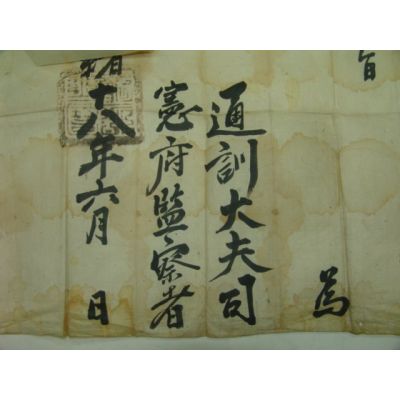 旨
爲
通訓大夫司
憲府監察者
十八年六月 日